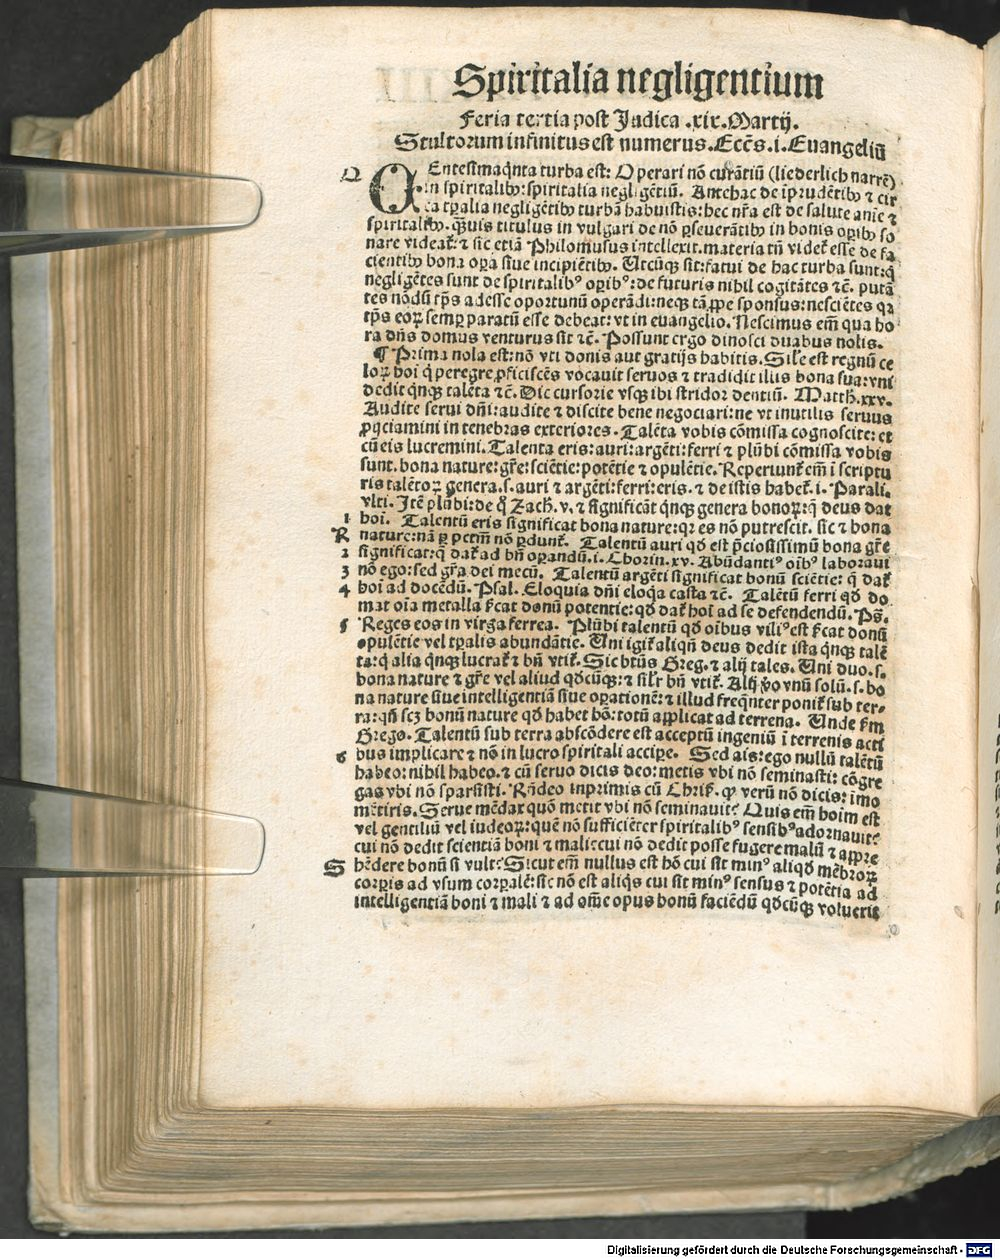 Spiritalia negligentium
Feria tertia post Judica .xix. Martij.
Stultorum infinitus est numerus. Eccēs .i. Euangeliū
Q
CEntesimaq̄nta turba est: Operari nō curātiū (liederlich narrē)
in spiritalibꝰ: spiritalia negligētiū. Antehac de īprudētibꝰ ⁊ cir
ca tꝑalia negligētibꝰ turbā habuistis: hec nr̄a est de salute anie ⁊
spiritalibꝰ. q̄uis titulus in vulgari de nō ꝑseuerātibꝰ in bonis oꝑibꝰ so
nare videat᷑: ⁊ sic etiā Philomusus intellexit. materia tn̄ videt᷑ esse de fa
cientibꝰ bona oꝑa siue incipiētibꝰ. Utcūqꝫ sit: fatui de hac turba sunt: q̇
negligētes sunt de spiritalibꝰ oꝑibꝰ: de futuris nihil cogitātes ⁊c̄. putā
tes nōdū tp̄s adesse oportunū operādi: neqꝫ tā ꝓpe sponsus: nesciētes qꝛ
tp̄s eoꝝ semꝑ paratū esse debeat: vt in euangelio. Nescimus em̄ qua ho
ra dn̄s domus venturus sit ⁊c̄. Possunt ergo dinosci duabus nolis.
¶ Prima nola est: nō vti donis aut gratijs habitis. Sil̄e est regnū ce
loꝝ hoi q̇ peregre ꝓficiscēs vocauit seruos ⁊ tradidit illis bona sua: vni
dedit q̇nqꝫ talēta ⁊c̄. Dic cursorie vsqꝫ ibi stridor dentiū. Matth. xxv.
Audite serui dn̄i: audite ⁊ discite bene negociari: ne vt inutilis seruus
ꝓijciamini in tenebras exteriores. Talēta vobis cōmissa cognoscite: et
cū eis lucremini. Talenta eris: auri: argēti: ferri ⁊ plūbi cōmissa vobis
sunt. bona nature: gr̄e: sciētie: potētie ⁊ opulētie. Reperiunt᷑ em̄ ī scriptu
ris talētoꝝ genera .s. auri ⁊ argēti: ferri: eris. ⁊ de istis habet᷑ .i. Parali.
vlti. Itē plūbi: de q̊ Zach. v. ⁊ significāt q̇nqꝫ genera bonoꝝ: q̄ deus dat
1 hoi. Talentū eris significat bona nature: qꝛ es nō putrescit. sic ⁊ bona
R nature: nā ꝑ pctm̄ nō ꝑdunt᷑. Talentū auri qd̓ est p̄ciosissimū bona gr̄e
2 significat: q̄ dat᷑ ad bn̄ oꝑandū .i. Chorin. xv. Abūdantiꝰ oībꝰ laboraui
3 nō ego: sed gr̄a dei mecū. Talentū argēti significat bonū sciētie: q̄ dat᷑
4 hoi ad docēdū. Psal. Eloquia dn̄i eloq̇a casta ⁊c̄. Talētū ferri qd̓ do
mat oīa metalla s̓cat donū potentie: qd̓ dat᷑ hoī ad se defendendū. Ps̄.
5 Reges eos in virga ferrea. Plūbi talentū qd̓ oībus viliꝰ est s̓cat donū
opulētie vel tꝑalis abundātie. Uni igit᷑ aliqn̄ deus dedit ista q̇nqꝫ talē
ta: q̇ alia q̇nqꝫ lucrat᷑ ⁊ bn̄ vtit᷑. Sic btūs Greg. ⁊ alij tales. Uni duo .s.
bona nature ⁊ gr̄e vel aliud qd̓cūqꝫ: ⁊ sil̓r bn̄ vtit᷑. Alij v̓o vnū solū .s. bo
na nature siue intelligentiā siue oꝑationē: ⁊ illud freq̄nter ponit᷑ sub ter-
ra: qn̄ scꝫ bonū nature qd̓ habet hō: totū applicat ad terrena. Unde s̓m
Grego. Talentū sub terra abscōdere est acceptū ingeniū ī terrenis acti
6 bus implicare ⁊ nō in lucro spiritali accipe. Sed ais: ego nullū talētū
habeo: nihil habeo. ⁊ cū seruo dicis deo: metis vbi nō seminasti: cōgre
gas vbi nō sparsisti. Rn̄deo inprimis cū Chris̓. ꝙ verū nō dicis: imo
mētiris. Serue mēdax quō metit vbi nō seminauit? Quis em̄ hoim est
vel gentiliū vel iudeoꝝ: quē nō sufficiēter spiritalibꝰ sensibꝰ adornauit?
cui nō dedit scientiā boni ⁊ mali: cui nō dedit posse fugere malū ⁊ appre
S hēdere bonū si vult? Sicut em̄ nullus est hō cui sit minꝰ aliqd̓ mēbroꝝ
corꝑis ad vsum corꝑalē: sic nō est aliq̇s cui sit minꝰ sensus ⁊ potētia ad
intelligentiā boni ⁊ mali ⁊ ad om̄e opus bonū faciēdū qd̓cūqꝫ voluerit
Digitalisierung gefördert durch die Deutsche Forschungsgemeinschaft - DFG